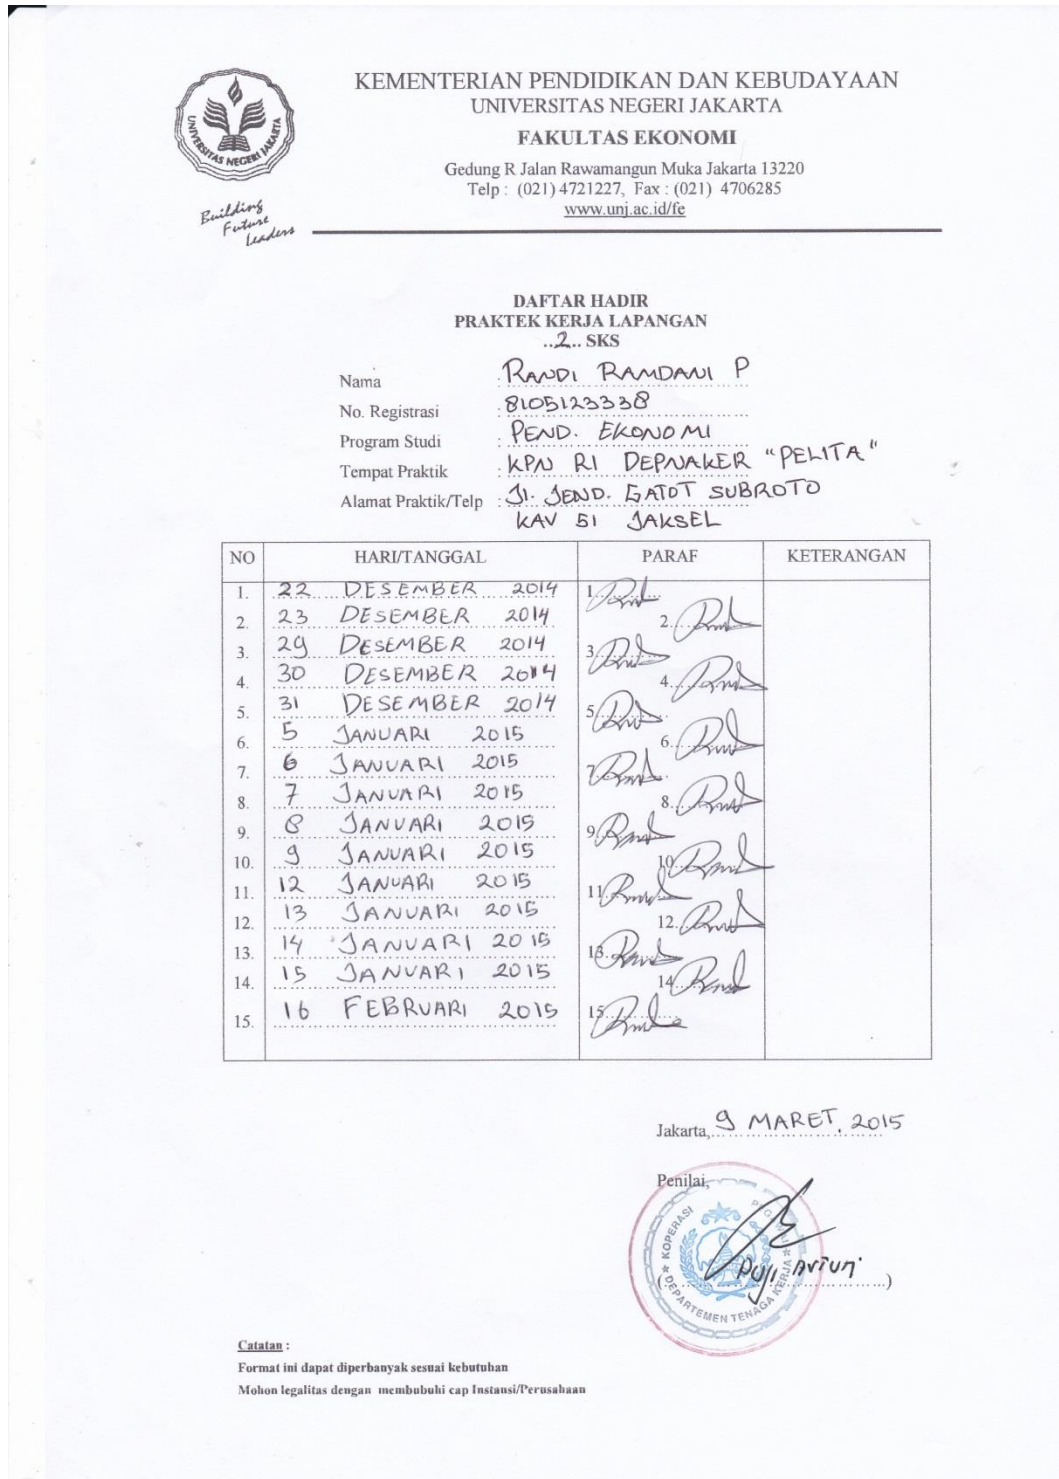 KEMENTERIAN PENDIDIKAN DAN KEBUDAYAAN
UNIVERSITAS NEGERI JAKARTA
FAKULTAS EKONOMI
Gedung R Jalan Rawamangun Muka Jakarta 13220
Telp : (021) 4721227, Fax : (021) 4706285
www.unj.ac.id/fe
UNIVERSITAS NEGERI JAKARTA
Building
Future
Leaders
DAFTAR HADIR
PRAKTEK KERJA LAPANGAN
..2.. SKS
Nama : RANDI RAMDANI P
No. Registrasi : 8105123338
Program Studi : PEND. EKONOMI
Tempat Praktik : KPN RI DEPNAKER "PELITA"
Alamat Praktik/Telp : Jl. JEND. GATOT SUBROTO
KAV 51 JAKSEL
NO HARI/TANGGAL PARAF KETERANGAN
1. 22 DESEMBER 2014 1.
2. 23 DESEMBER 2014 2.
3. 29 DESEMBER 2014 3.
4. 30 DESEMBER 2014 4.
5. 31 DESEMBER 2014 5.
6. 5 JANUARI 2015 6.
7. 6 JANUARI 2015 7.
8. 7 JANUARI 2015 8.
9. 8 JANUARI 2015 9.
10. 9 JANUARI 2015 10.
11. 12 JANUARI 2015 11.
12. 13 JANUARI 2015 12.
13. 14 JANUARI 2015 13.
14. 15 JANUARI 2015 14.
15. 16 FEBRUARI 2015 15.
Jakarta, 9 MARET, 2015
Penilai,
KOPERASI
DEPARTEMEN TENAGA KERJA
(Puji Astuti)
Catatan :
Format ini dapat diperbanyak sesuai kebutuhan
Mohon legalitas dengan membubuhi cap Instansi/Perusahaan